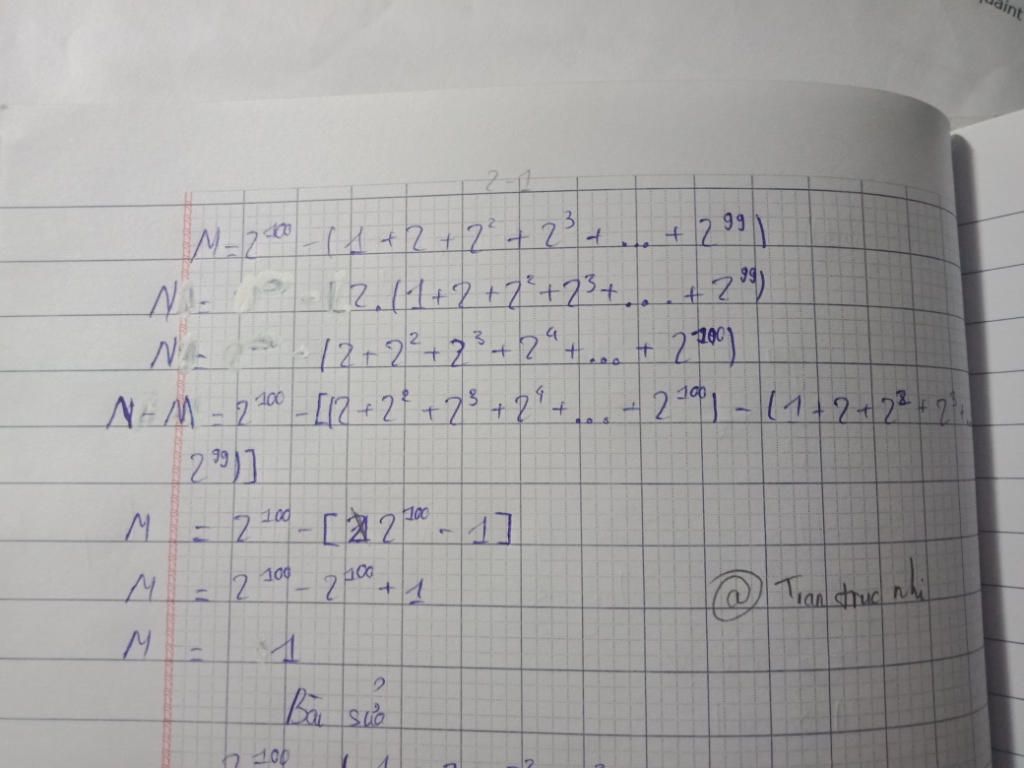 quaint
2-1
M = 2¹⁰⁰ - (1 + 2 + 2² + 2³ + ... + 2⁹⁹)
N = 2.(1+2+2²+2³+....+2⁹⁹)
N = (2+2²+2³+2⁴+...+2¹⁰⁰)
M = 2¹⁰⁰ - [(2+2²+2³+2⁴+...+2¹⁰⁰) - (1+2+2²+2³+..
2⁹⁹)]
M = 2¹⁰⁰ - [2¹⁰⁰ - 1]
M = 2¹⁰⁰ - 2¹⁰⁰ + 1
@ Tran truc nhi
M = 1
Bài sửa
2¹⁰⁰